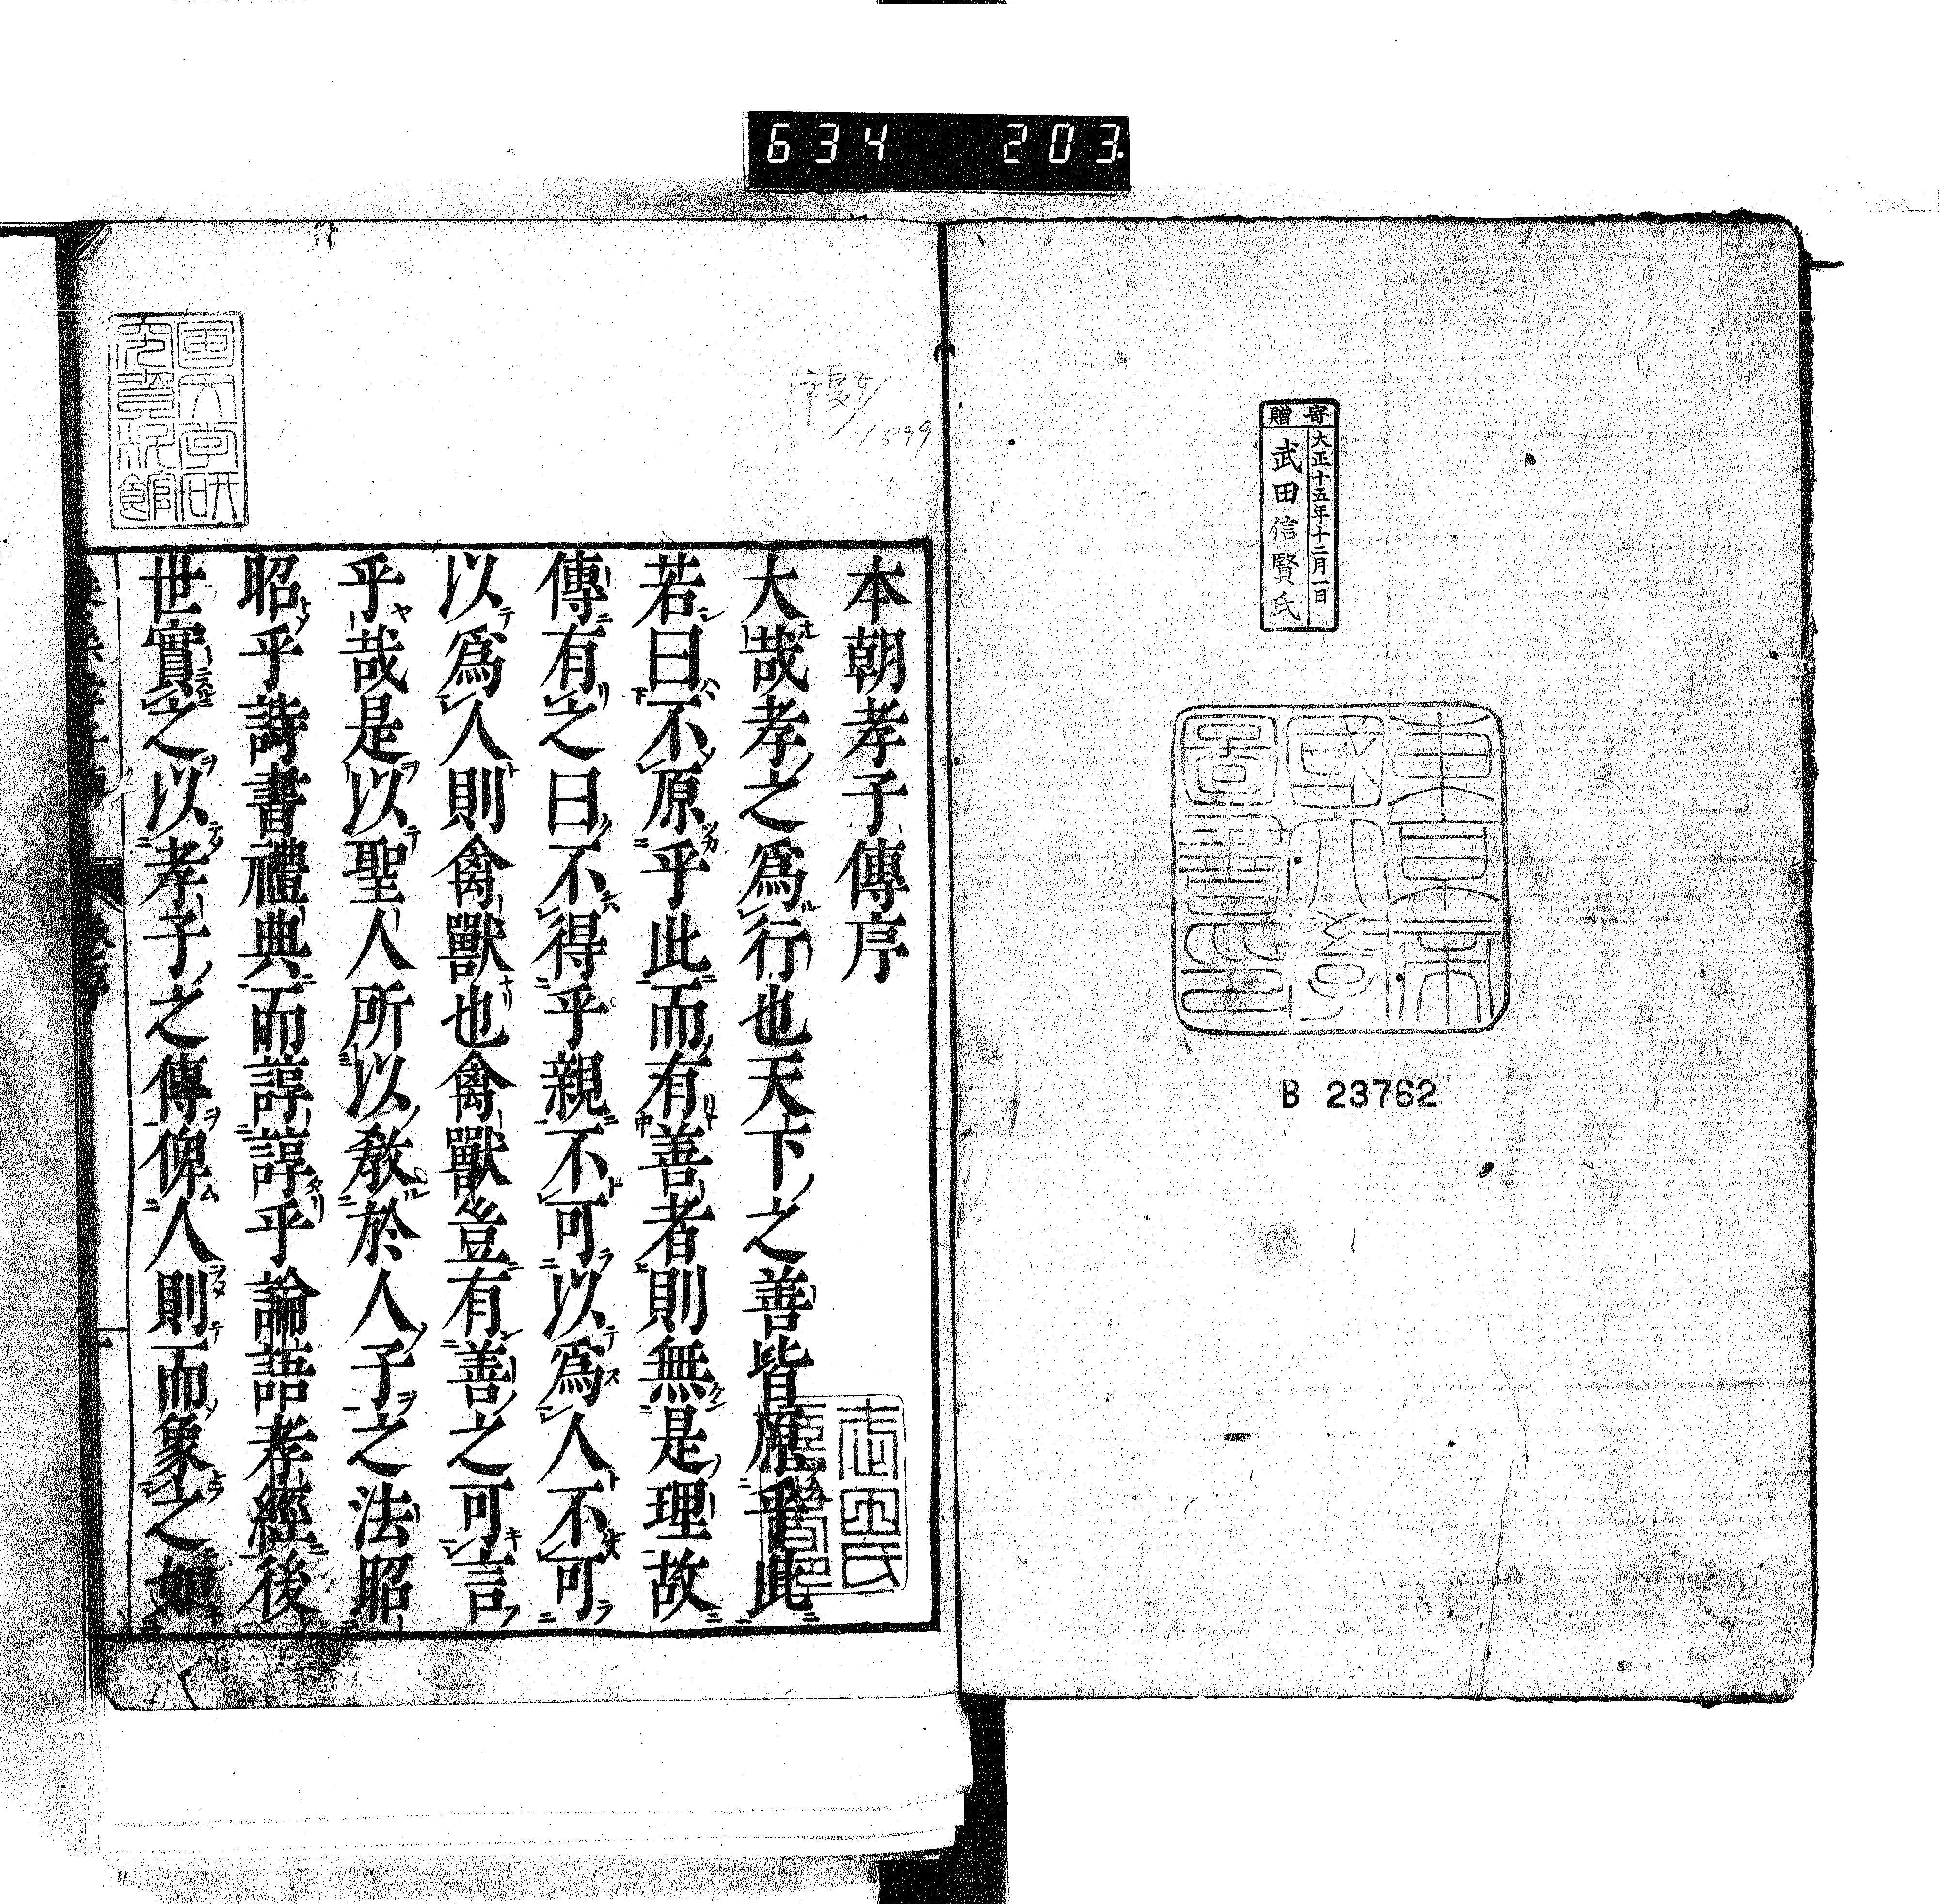 634 203.
寄贈
大正十五年十二月一日
武田信賢氏
東京帝
國大學
圖書印
B 23762
本朝孝子傳序
大哉孝之爲行也天下之善皆原乎此
若曰不原乎此而有善者則無是理故
傳有之曰不得乎親不可以爲人不可
以爲人則禽獸也禽獸豈有善之可言
乎哉是以聖人所以敎於人子之法昭
昭乎詩書禮典而諄諄乎論語孝經後
世實之以孝子之傳俾人則而象之如
1899